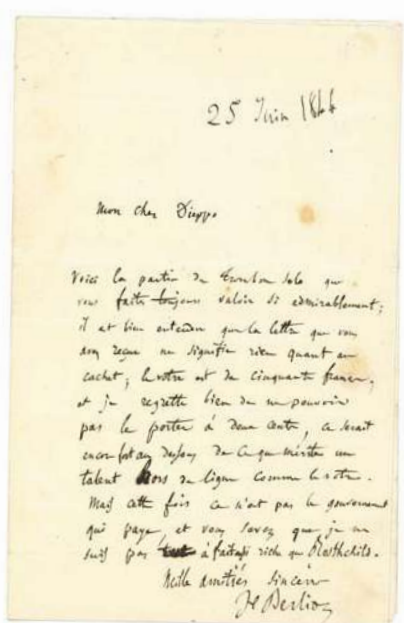 25 Juin 1844
Mon cher Dieppo
Voici la partie de Trombon solo que
vous faites toujours valoir si admirablement;
il est bien entendu que la lettre que vous
avez reçue ne signifie rien quant au
cachet; le votre est de cinquante francs,
et je regrette bien de ne pouvoir
pas le porter à deux cents, ce serait
encor fort au dessous de ce que mérite un
talent hors de ligne comme le votre.
Mais cette fois ce n'est pas le gouvernement
qui paye, et vous savez que je ne
suis pas tout à fait riche que Rothchild.
Mille amitiés sincères
H Berlioz